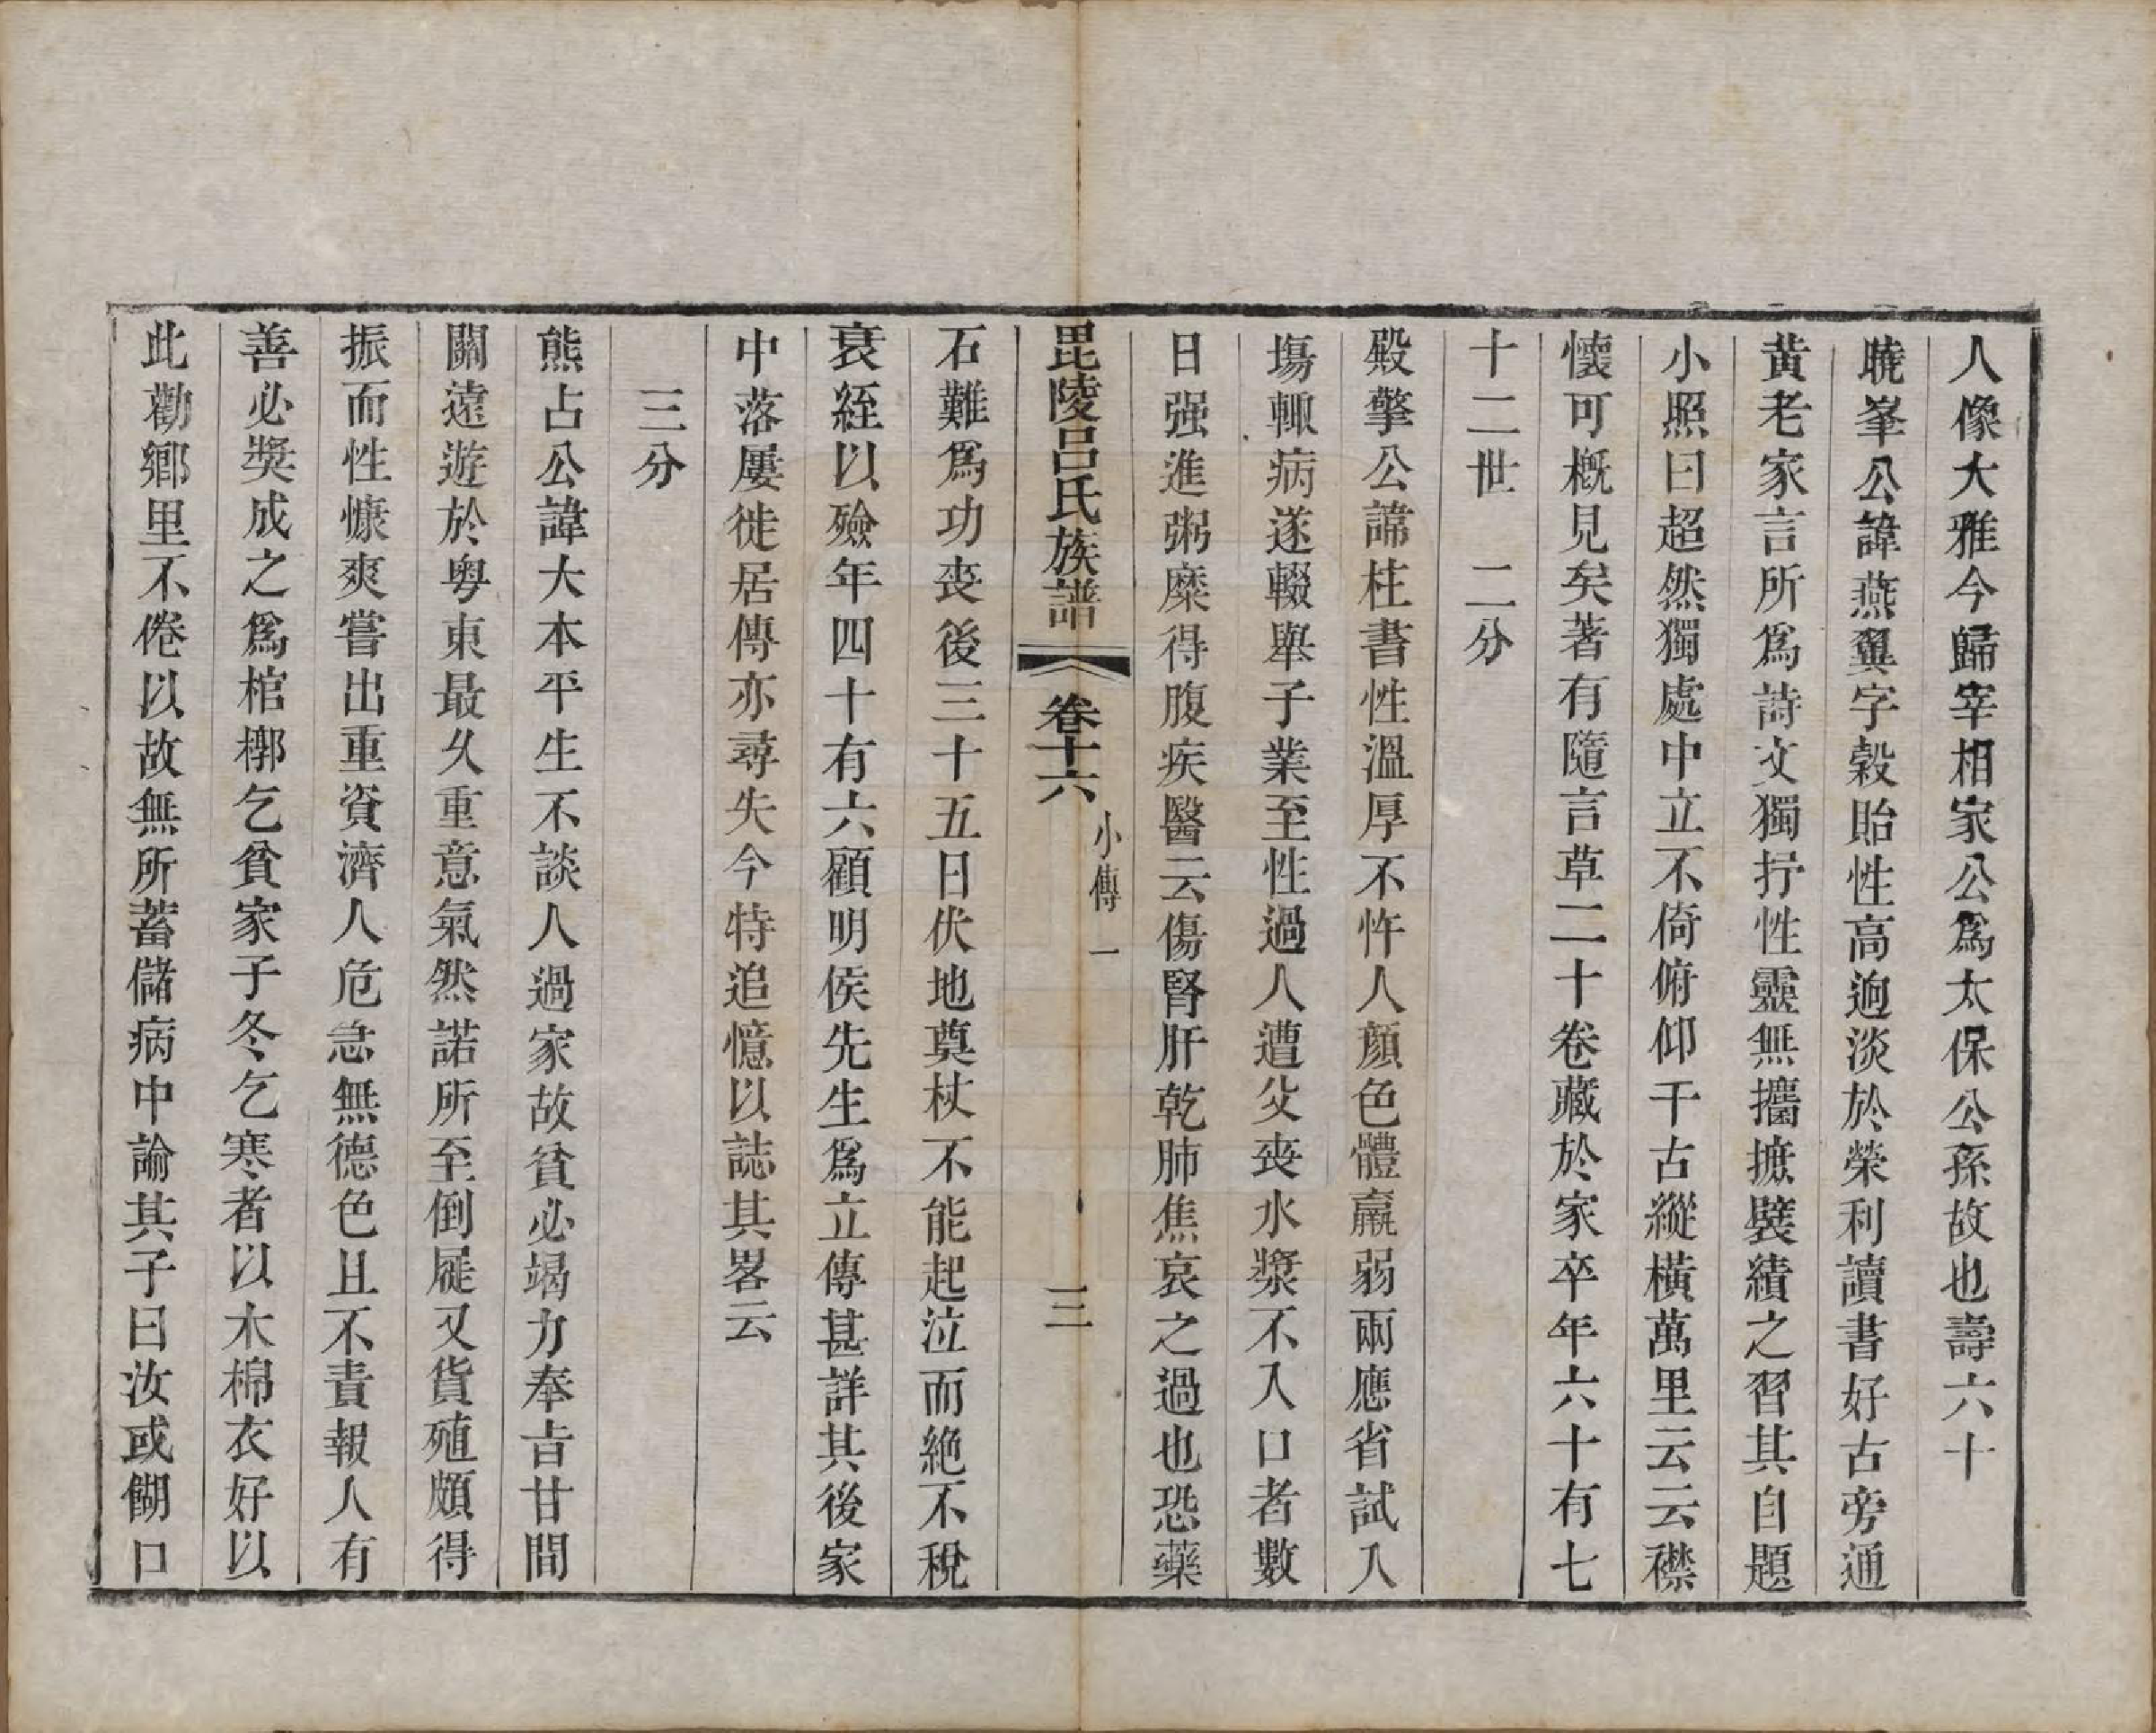 人像大雅今歸宰相家公爲太保公孫故也壽六十
曉峯公諱燕翼字穀貽性高逈淡於榮利讀書好古旁通
黃老家言所爲詩文獨抒性靈無攟摭襞績之習其自題
小照曰超然獨處中立不倚俯仰千古縱橫萬里云云襟
懷可槪見矣著有隨言草二十卷藏於家卒年六十有七
十二世　二分
殿擎公諱柱書性溫厚不忤人顏色體羸弱兩應省試入
塲輒病遂輟舉子業至性過人遭父喪水漿不入口者數
日强進粥糜得腹疾醫云傷腎肝乾肺焦哀之過也恐藥
毘陵呂氏族譜　卷十六　小傳一　三
石難爲功喪後三十五日伏地奠杖不能起泣而絶不稅
衰絰以殮年四十有六顧明侯先生爲立傳甚詳其後家
中落屢徙居傳亦尋失今特追憶以誌其畧云
三分
熊占公諱大本平生不談人過家故貧必竭力奉旨甘間
關遠遊於粵東最久重意氣然諾所至倒屣又貨殖頗得
振而性慷爽嘗出重資濟人危急無德色且不責報人有
善必獎成之爲棺槨乞貧家子冬乞寒者以木棉衣好以
此勸鄉里不倦以故無所蓄儲病中諭其子曰汝或餬口